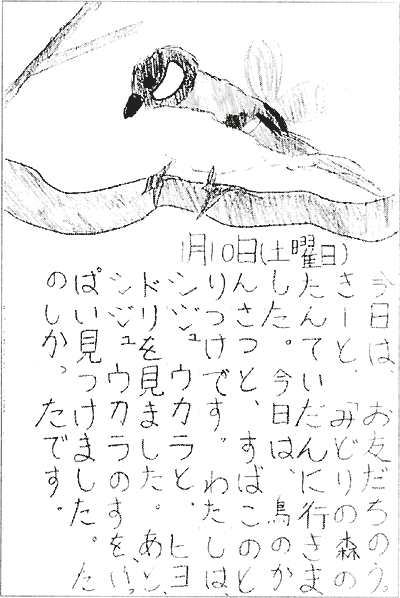 1月10日(土曜日)
今日は、お友だちのう。
さーと、「みどりの森の
たんていだんに行きま
した。今日は、鳥のか
んさつと、すばこのと
りつけです。わたしは、
シジュウカラと、ヒヨ
ドリを見ました。あと、
シジュウカラのすを、いっ
ぱい見つけました。た
のしかったです。